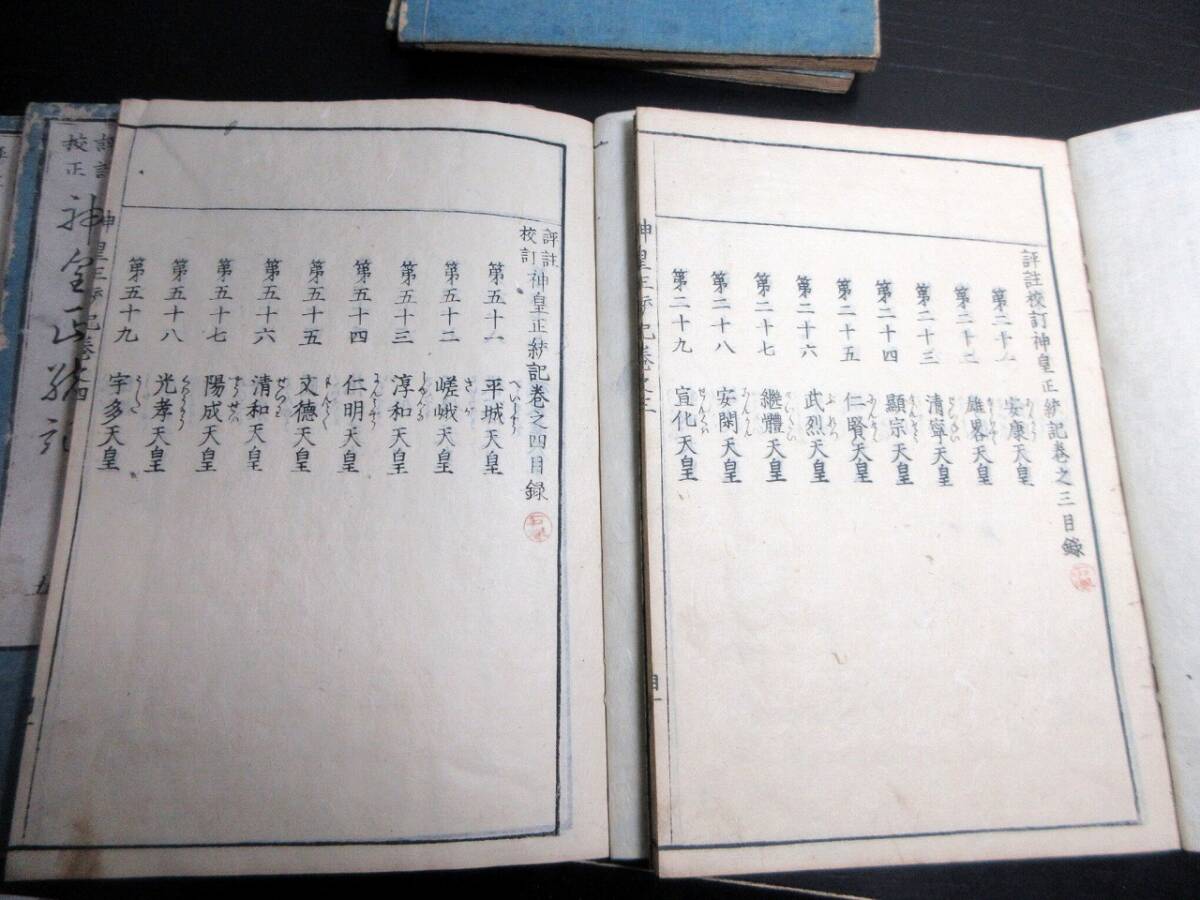 評註校訂神皇正統記巻之三目録
第二十一 安康天皇
第二十二 雄畧天皇
第二十三 清寧天皇
第二十四 顯宗天皇
第二十五 仁賢天皇
第二十六 武烈天皇
第二十七 繼體天皇
第二十八 安閑天皇
第二十九 宣化天皇
評註校訂神皇正統記巻之四目録
第五十一 平城天皇
第五十二 嵯峨天皇
第五十三 淳和天皇
第五十四 仁明天皇
第五十五 文德天皇
第五十六 清和天皇
第五十七 陽成天皇
第五十八 光孝天皇
第五十九 宇多天皇
評註校正神皇正統記